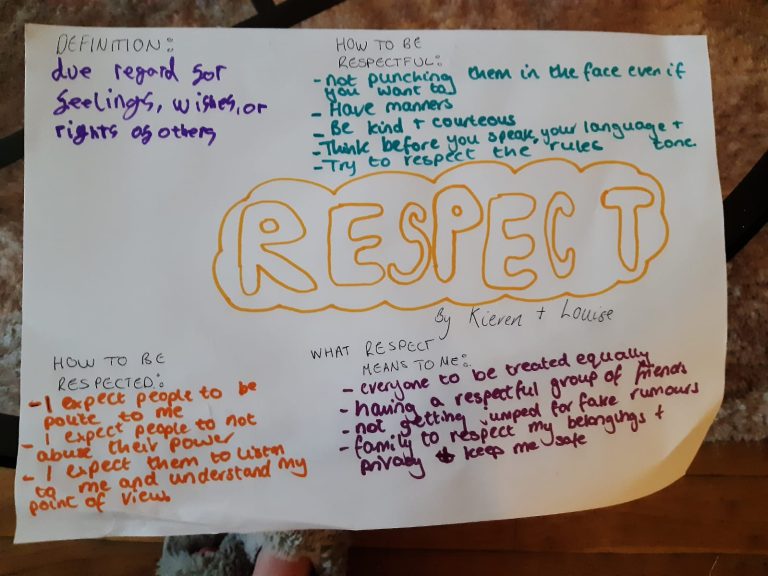 DEFINITION:
due regard for
feelings, wishes, or
rights of others
HOW TO BE
RESPECTFUL:
- not punching them in the face even if
you want to
- Have manners
- Be kind + courteous
- Think before you speak, your language +
tone.
- Try to respect the rules
RESPECT
By Kieren + Louise
HOW TO BE
RESPECTED:
- I expect people to be
polite to me
- I expect people to not
abuse their power
- I expect them to listen
to me and understand my
point of views
WHAT RESPECT
MEANS TO ME:
- everyone to be treated equally
- having a respectful group of friends
- not getting jumped for fake rumours
- family to respect my belongings +
privacy + keep me safe